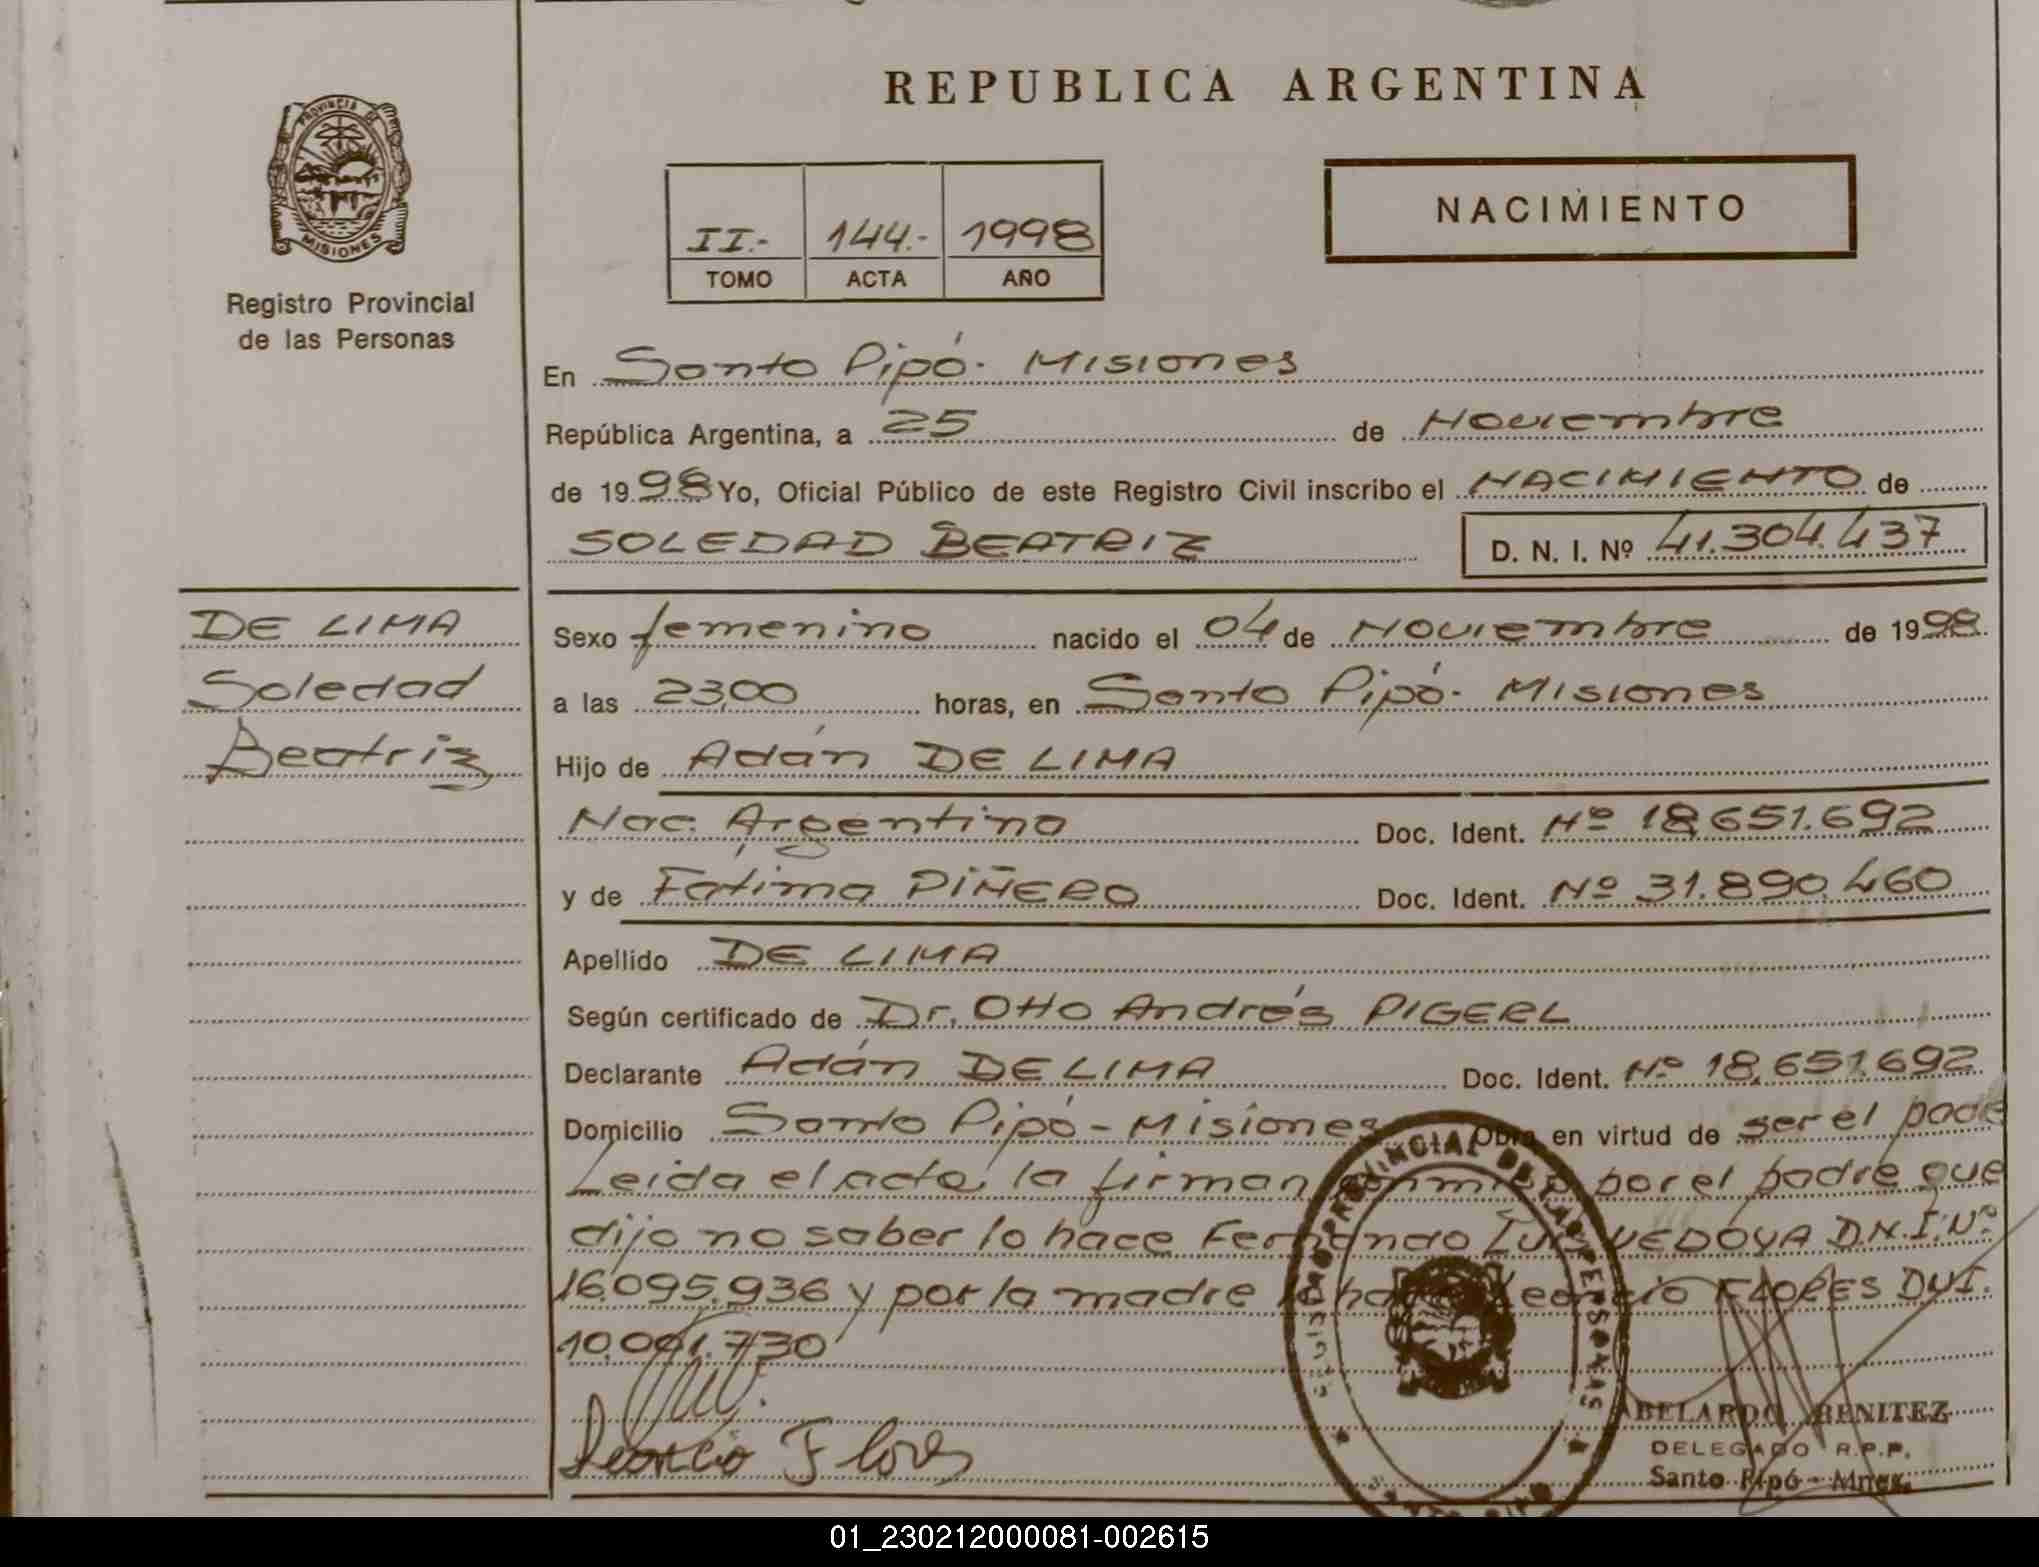 REPUBLICA ARGENTINA
PROVINCIA DE
MISIONES
Registro Provincial
de las Personas
II.- 144.- 1998
TOMO ACTA AÑO
NACIMIENTO
En Santo Pipó. Misiones
República Argentina, a 25 de Noviembre
de 1998 Yo, Oficial Público de este Registro Civil inscribo el NACIMIENTO de
SOLEDAD BEATRIZ D. N. I. Nº 41.304.437
DE LIMA
Soledad
Beatriz
Sexo femenino nacido el 04 de Noviembre de 1998.
a las 23,00 horas, en Santo Pipó. Misiones
Hijo de Adán DE LIMA
Nac. Argentino Doc. Ident. Nº 18.651.692
y de Fatima PIÑERO Doc. Ident. Nº 31.890.460
Apellido DE LIMA
Según certificado de Dr. Otto Andrés PIGERL
Declarante Adán DE LIMA Doc. Ident. Nº 18.651.692
Domicilio Santo Pipó - Misiones Obra en virtud de ser el
Leida el acta, la firman conmigo por el padre que
dijo no saber lo hace Fernando D.N.I. Nº
16.095.936 y por la madre lo hace Leoncio FLORES DNI.
10.001.730
Leoncio Flores
PROVINCIAL DE LAS PERSONAS
ABELARDO BENITEZ
DELEGADO R.P.P.
Santo Pipó - Mnes.
01_230212000081-002615